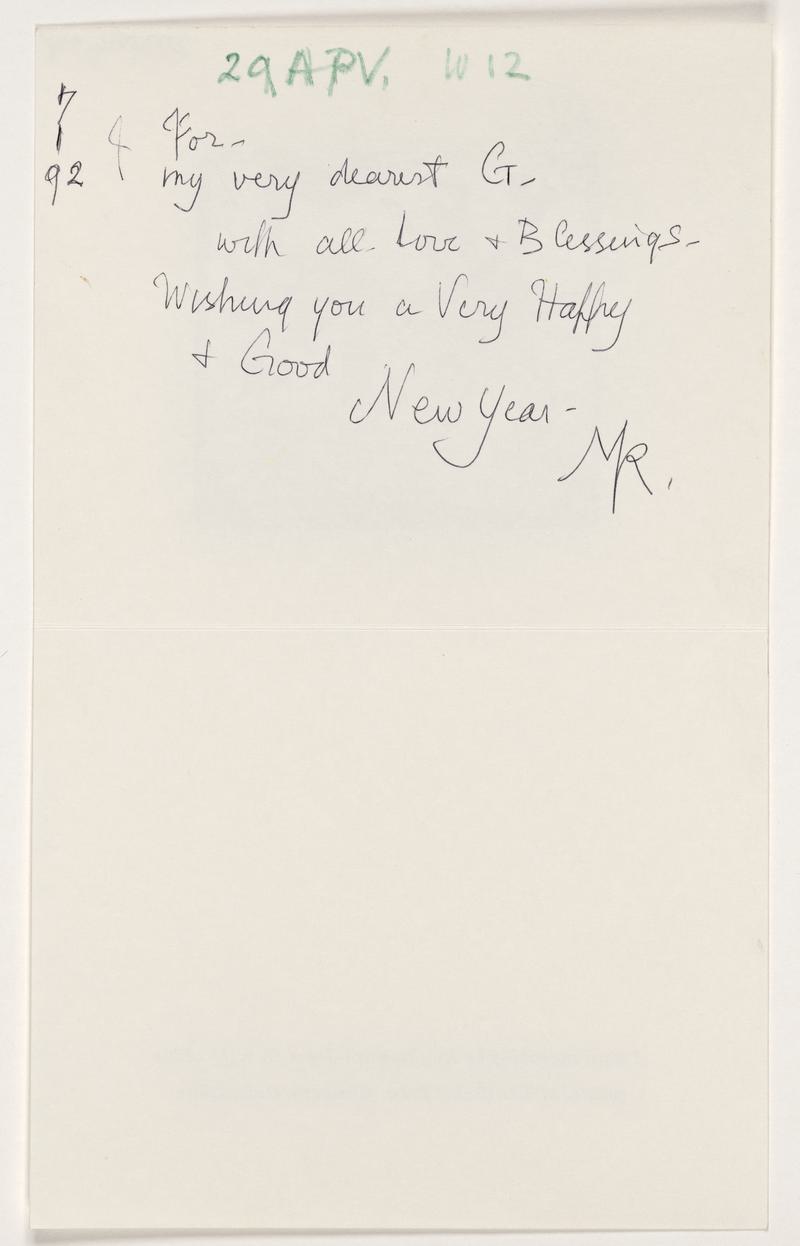 29 APV, W12
7
1
92
For -
my very dearest G -
with all Love + Blessings -
Wishing you a Very Happy
+ Good
New Year -
MR.